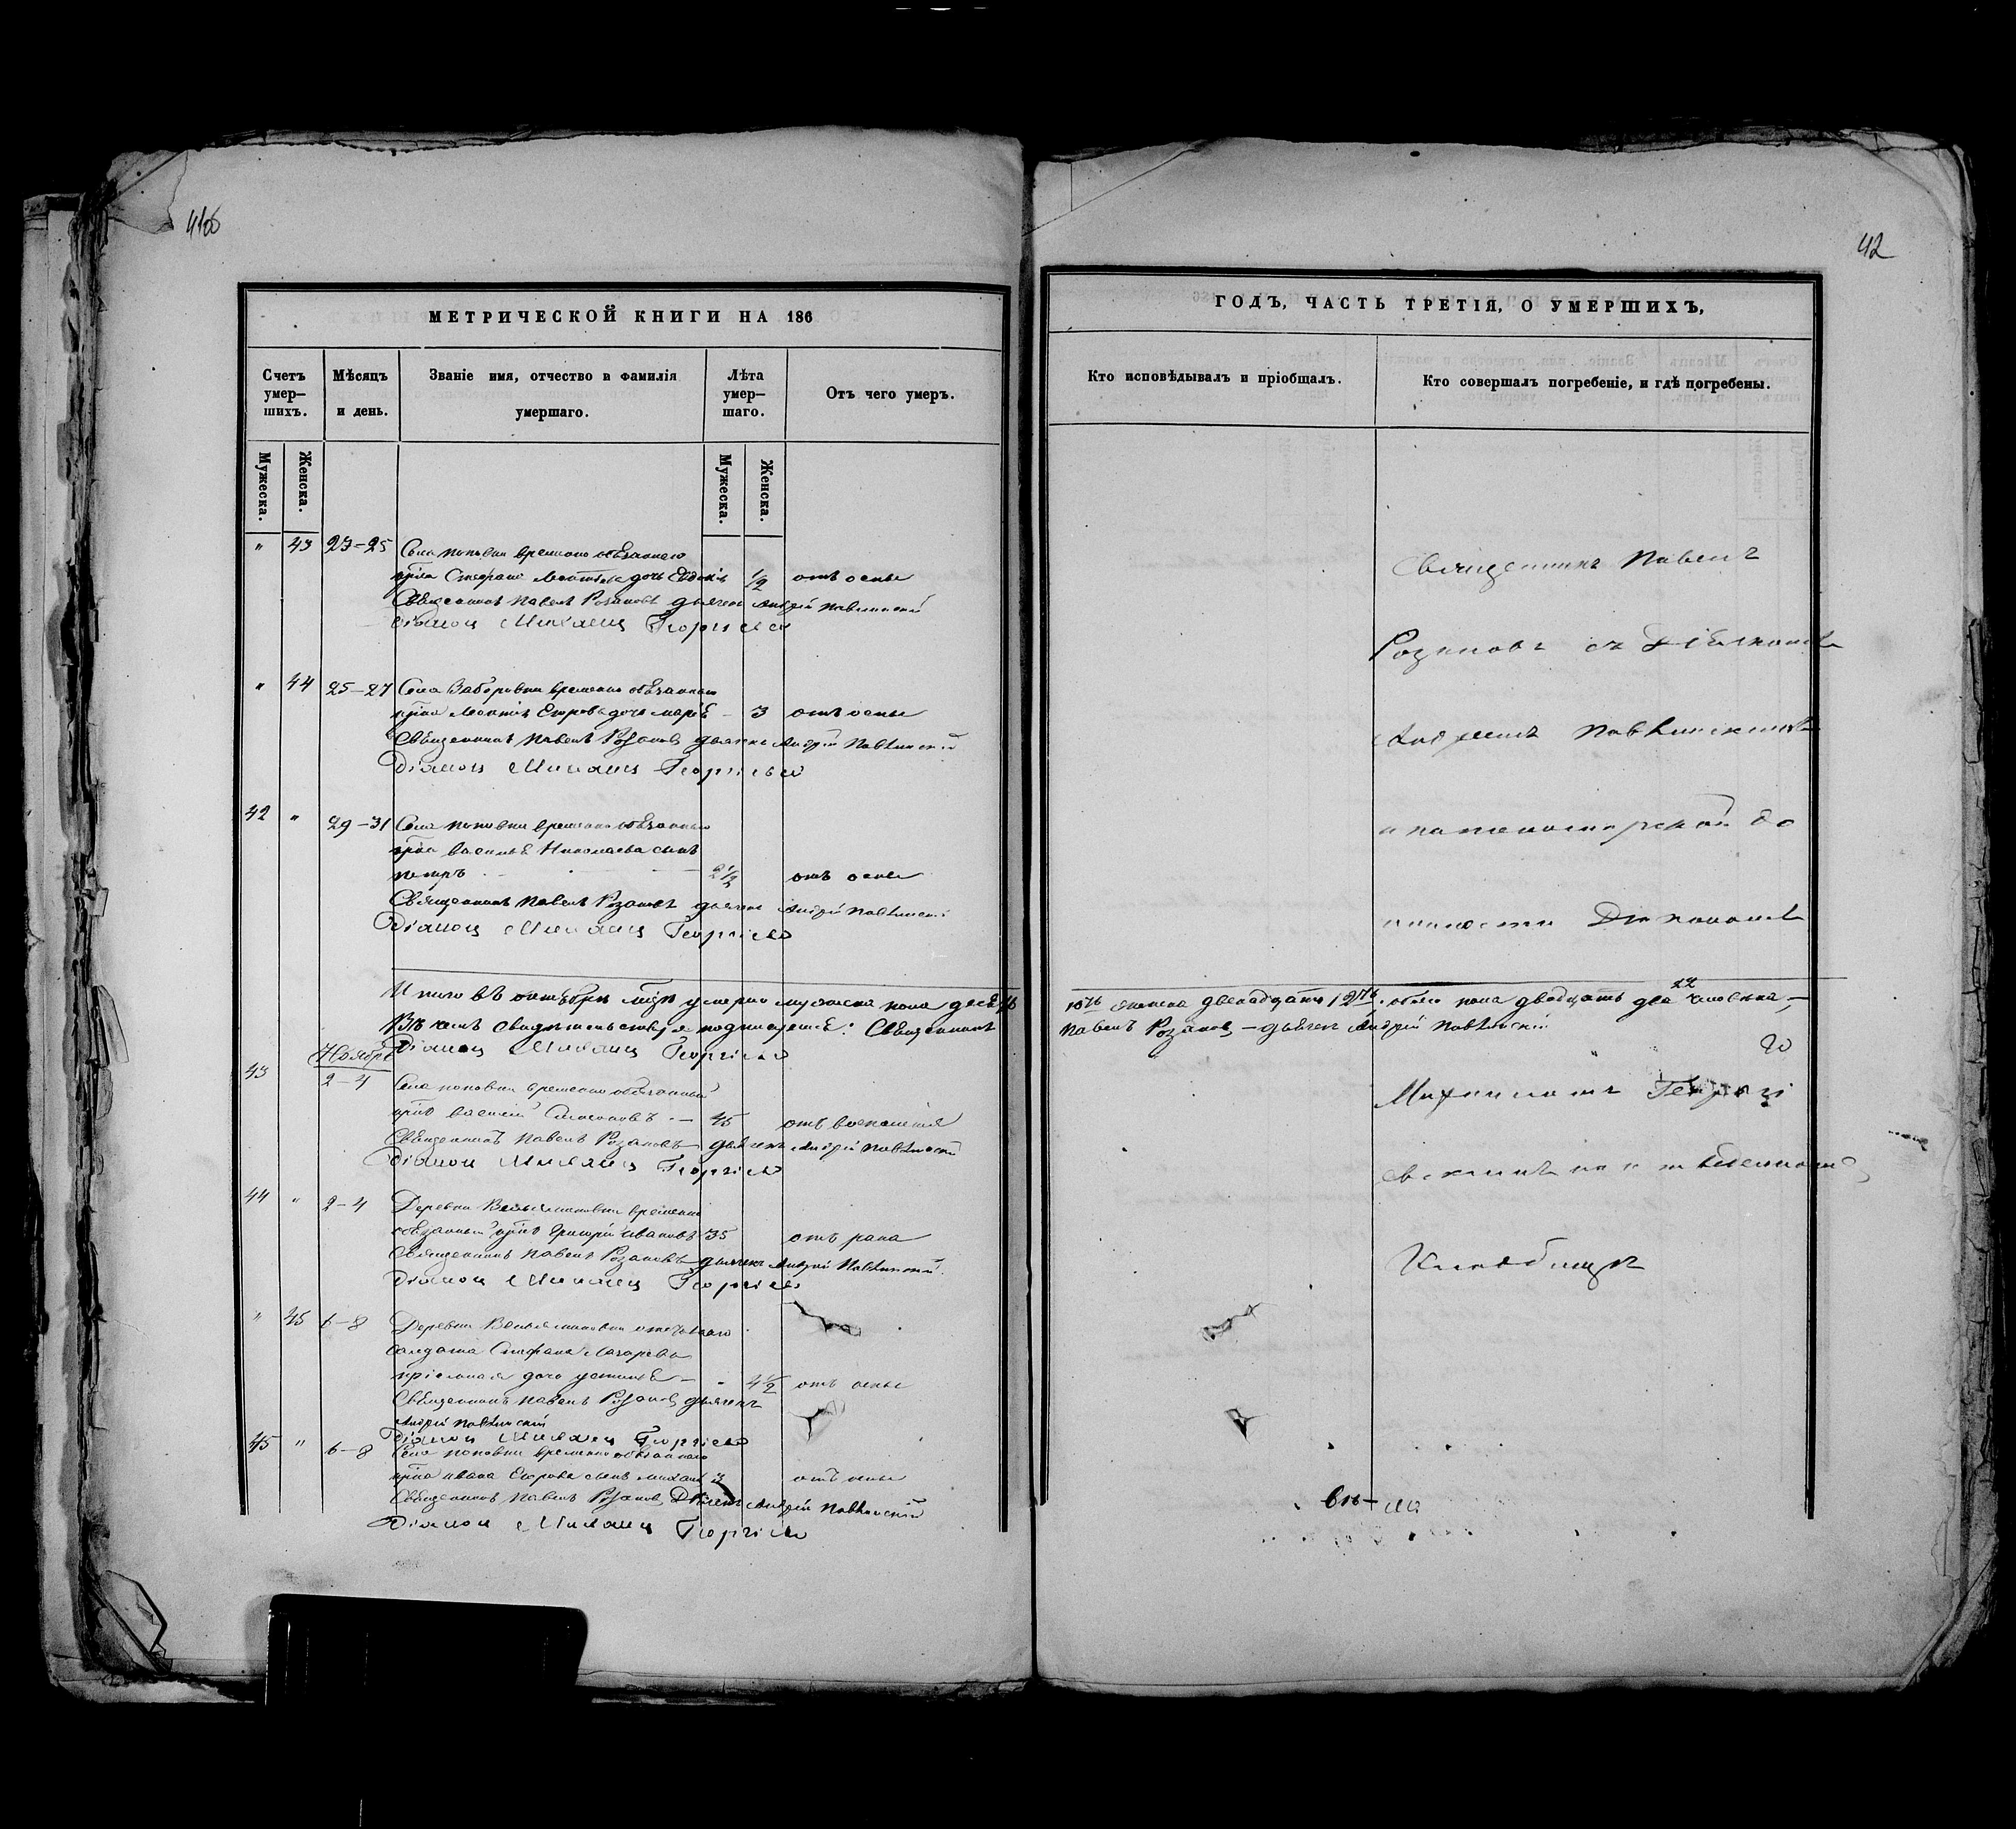 41об
МЕТРИЧЕСКОЙ КНИГИ НА 186
Счетъ умер—шихъ.
Мѣсяцъ и день.
Званіе имя, отчество и фамилія умершаго.
Лѣта умер—шаго.
Отъ чего умеръ.
Мужеска.
Женска.
Мужеска.
Женска.
" 43 23–25 Села поповки временно обязаннаго
крна Стефана дочь Евдокія 1/2 отъ оспы
Священникъ Павелъ Розановъ дьячекъ Андрей Павлинскій
Діаконъ Михаилъ Георгіевъ
" 44 25–27 Села Заборовки временно обязаннаго
крна Леонтія Егорова дочь Марія – 3 отъ оспы
Священникъ Павелъ Розановъ дьячекъ Андрей Павлинскій
Діаконъ Михаилъ Георгіевъ
42 " 29–31 Села поповки временно обязаннаго
крна Василья Николаева сынъ
петръ 2 1/2 отъ оспы
Священникъ Павелъ Розановъ дьячекъ Андрей Павлинскій
Діаконъ Михаилъ Георгіевъ
Итого въ октябрѣ мцѣ умерло мужеска пола десять
Въ чемъ свидѣтельствуя подписуемся: Священникъ
Діаконъ Михаилъ Георгіевъ
Ноябрь
43 2–4 Села поповки временно обязанный
крнъ Василій – 45 отъ воспаленія
Священникъ Павелъ Розановъ дьячекъ Андрей Павлинскій
Діаконъ Михаилъ Георгіевъ
44 " 2–4 Деревни временно
обязанный крнъ Григорій Ивановъ 35 отъ рака
Священникъ Павелъ Розановъ дьячекъ Андрей Павлинскій
Діаконъ Михаилъ Георгіевъ
" 45 6–8 Деревни
солдата Стефана Лазарева
дочь устинья – " 4 1/2 отъ оспы
Священникъ Павелъ Розановъ дьячекъ
Андрей Павлинскій
Діаконъ Михаилъ Георгіевъ
45 " 6–8 Села поповки временно обязаннаго
крна ивана Егорова сынъ михаилъ 3 отъ оспы
Священникъ Павелъ Розановъ Дьячекъ Андрей Павлинскій
Діаконъ Михаилъ Георгіевъ
42
ГОДЪ, ЧАСТЬ ТРЕТІЯ, О УМЕРШИХЪ,
Кто исповѣдывалъ и пріобщалъ.
Кто совершалъ погребеніе, и гдѣ погребены.
Священникъ Павелъ
Розановъ съ дьячкомъ
Андреемъ Павлинскимъ
и пономарской до
лжности Діакономъ
10ть женска двенадцать 12ть, обоего пола двадцать два 22 человека, –
Павелъ Розановъ – дьячекъ Андрей Павлинскій
Михаиломъ Георгі
евскимъ на отведенномъ
Кладбищѣ